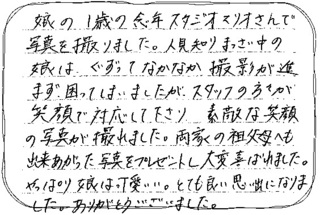 娘の1歳の記念スタジオマリオさんで
写真を撮りました。人見知りまっさい中の
娘は ぐずってなかなか撮影が進
まず困ってしまいましたが、スタッフの方々が
笑顔で対応して下さり 素敵な笑顔
の写真が撮れました。両家の祖父母へも
出来あがった写真をプレゼントし大変喜ばれました。
やっぱり娘は可愛いい。とても良い思い出になりま
した。ありがとうございました。